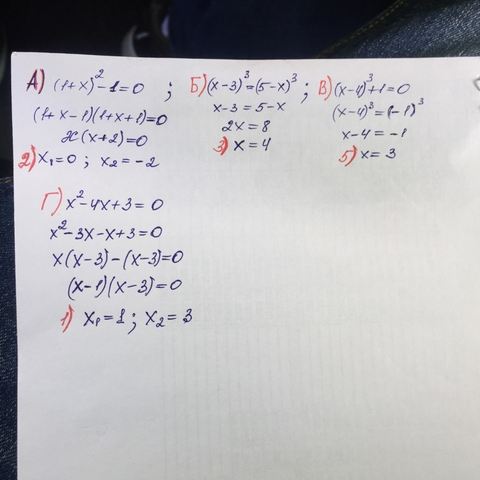 А) (1+x)² - 1 = 0 ;
(1+x-1)(1+x+1)=0
x(x+2)=0
2) x₁=0 ; x₂=-2
Б) (x-3)³=(5-x)³
x-3=5-x
2x=8
3) x=4
В) (x-4)³+1=0
(x-4)³=(-1)³
x-4=-1
5) x=3
Г) x²-4x+3=0
x²-3x-x+3=0
x(x-3)-(x-3)=0
(x-1)(x-3)=0
1) x₁=1 ; x₂=3